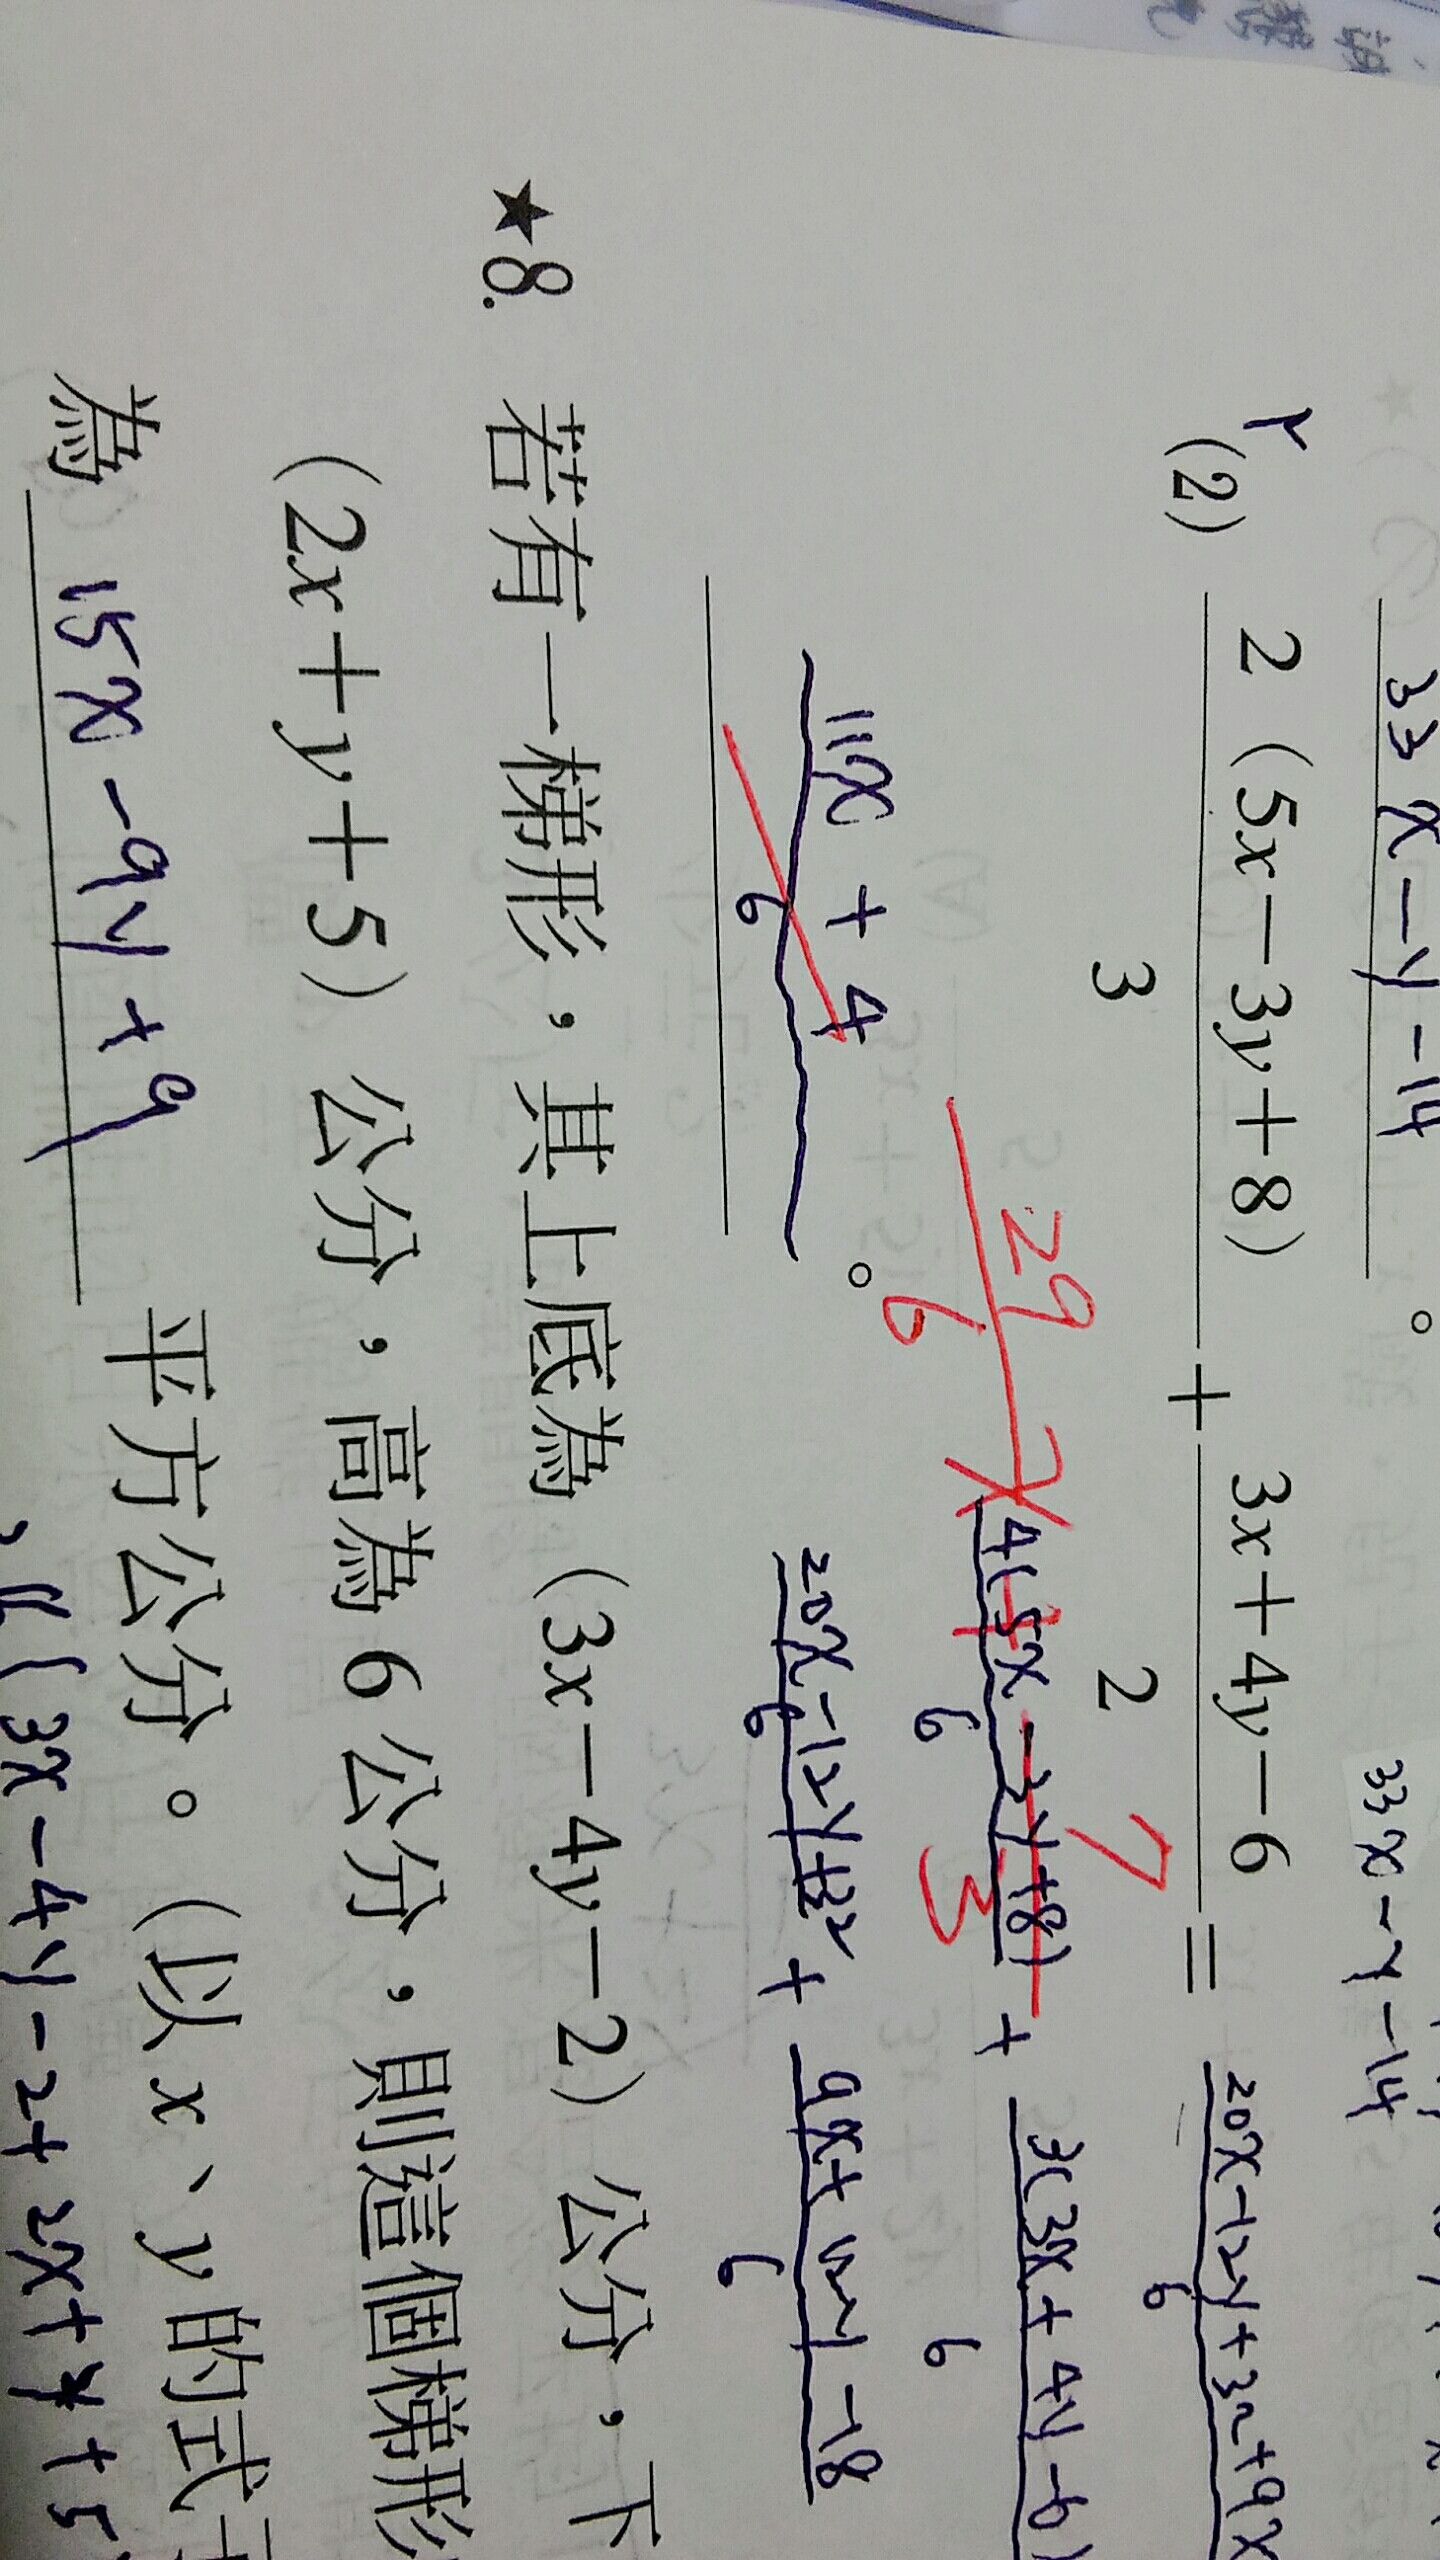 33x-y-14。
33x-y-14
(2) 2(5x-3y+8)/3 + 3x+4y-6/2 =
20x-12y+32+9x
6
4(5x-3y+8)/6 + 3(3x+4y-6)/6
29
6
7
3
20x-12y+32/6 + 9x+12y-18/6
11x+4/6。
★8. 若有一梯形,其上底為(3x-4y-2)公分,下
(2x+y+5)公分,高為6公分,則這個梯形
為 15x-9y+9 平方公分。(以x、y的式
(3x-4y-2+2x+y+5